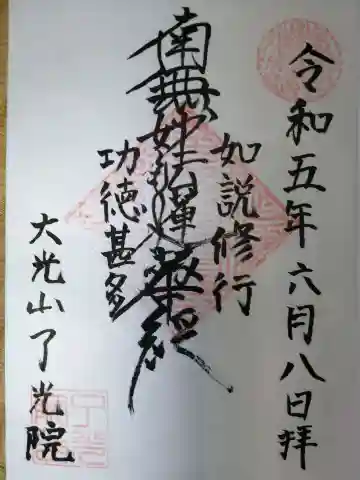 令和五年六月八日拝
如説修行
南無妙法蓮華経
功徳甚多
大光山了光院